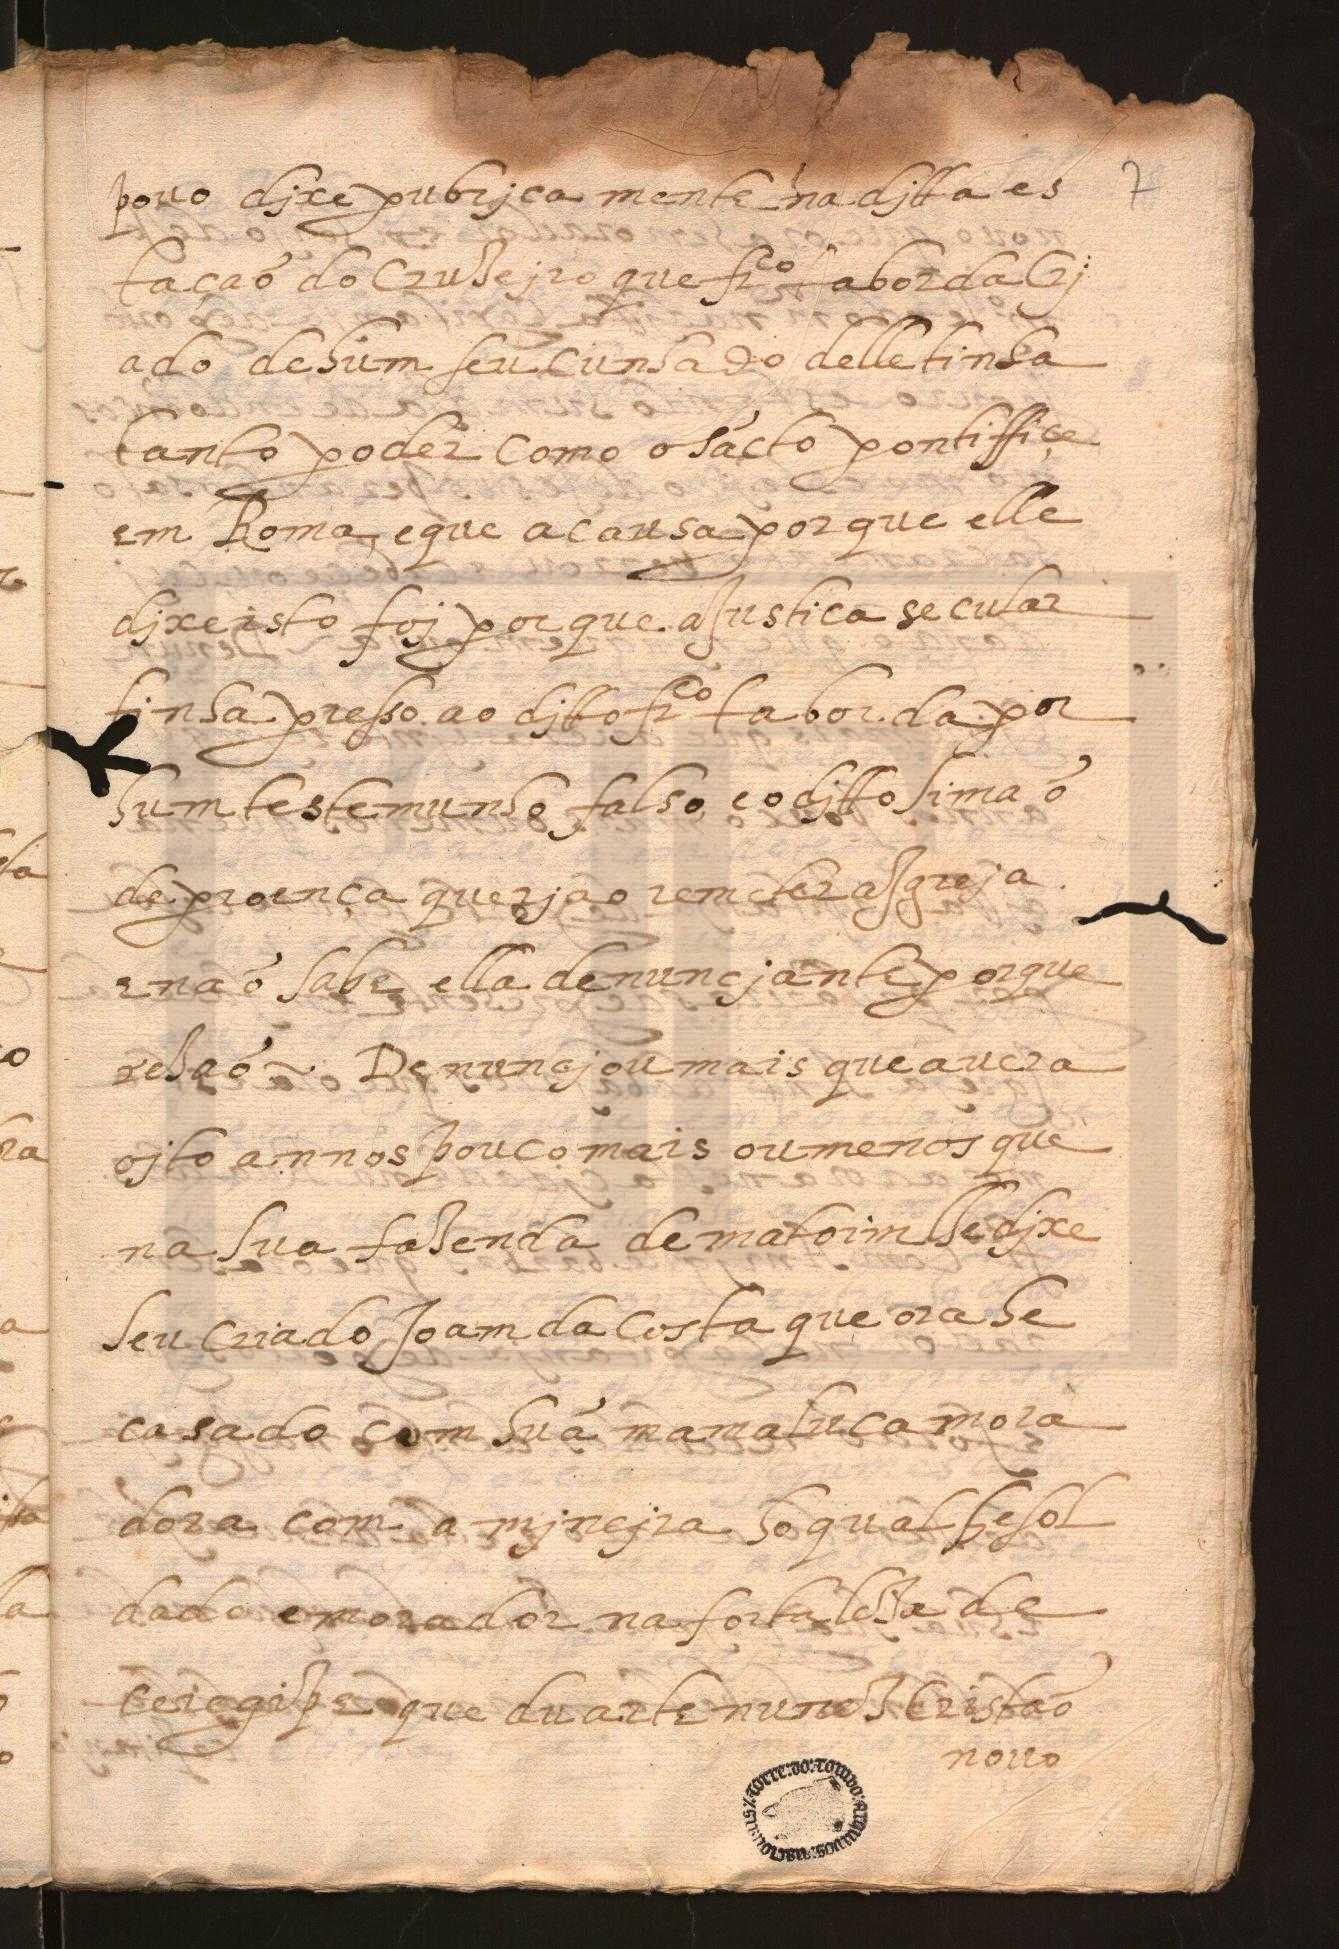 7
pouo djxe pubrjca mente na djtta es
taçaó do Cruzejro que frco tabordaCrj
ado de hum seu Cunhado delle tinha
tanto poder Como o sácto pontiffiçe
em Roma, e que a causa porque elle
djxe isto foj porque a Justica secular
tinha presso ao djtto frco taborda por
hum testemunho falso, e o djtto simaó
de proença querjao remeter a Igreja
e naó sabe ella denuncjante porque
rezaó ~ Denuncjou mais que auera
ojto annos pouco mais ou menos que
na sua fazenda de matoim lhe djxe
seu Criado Joam da Costa que ora he
casado com huá mamaluca mora
dora com a mjnejra ho qual he sol
dado e morador na fortaleza de
Ceregipe que duarte nunez Cristaó
nouo
TORRE:DO:TOMBO: